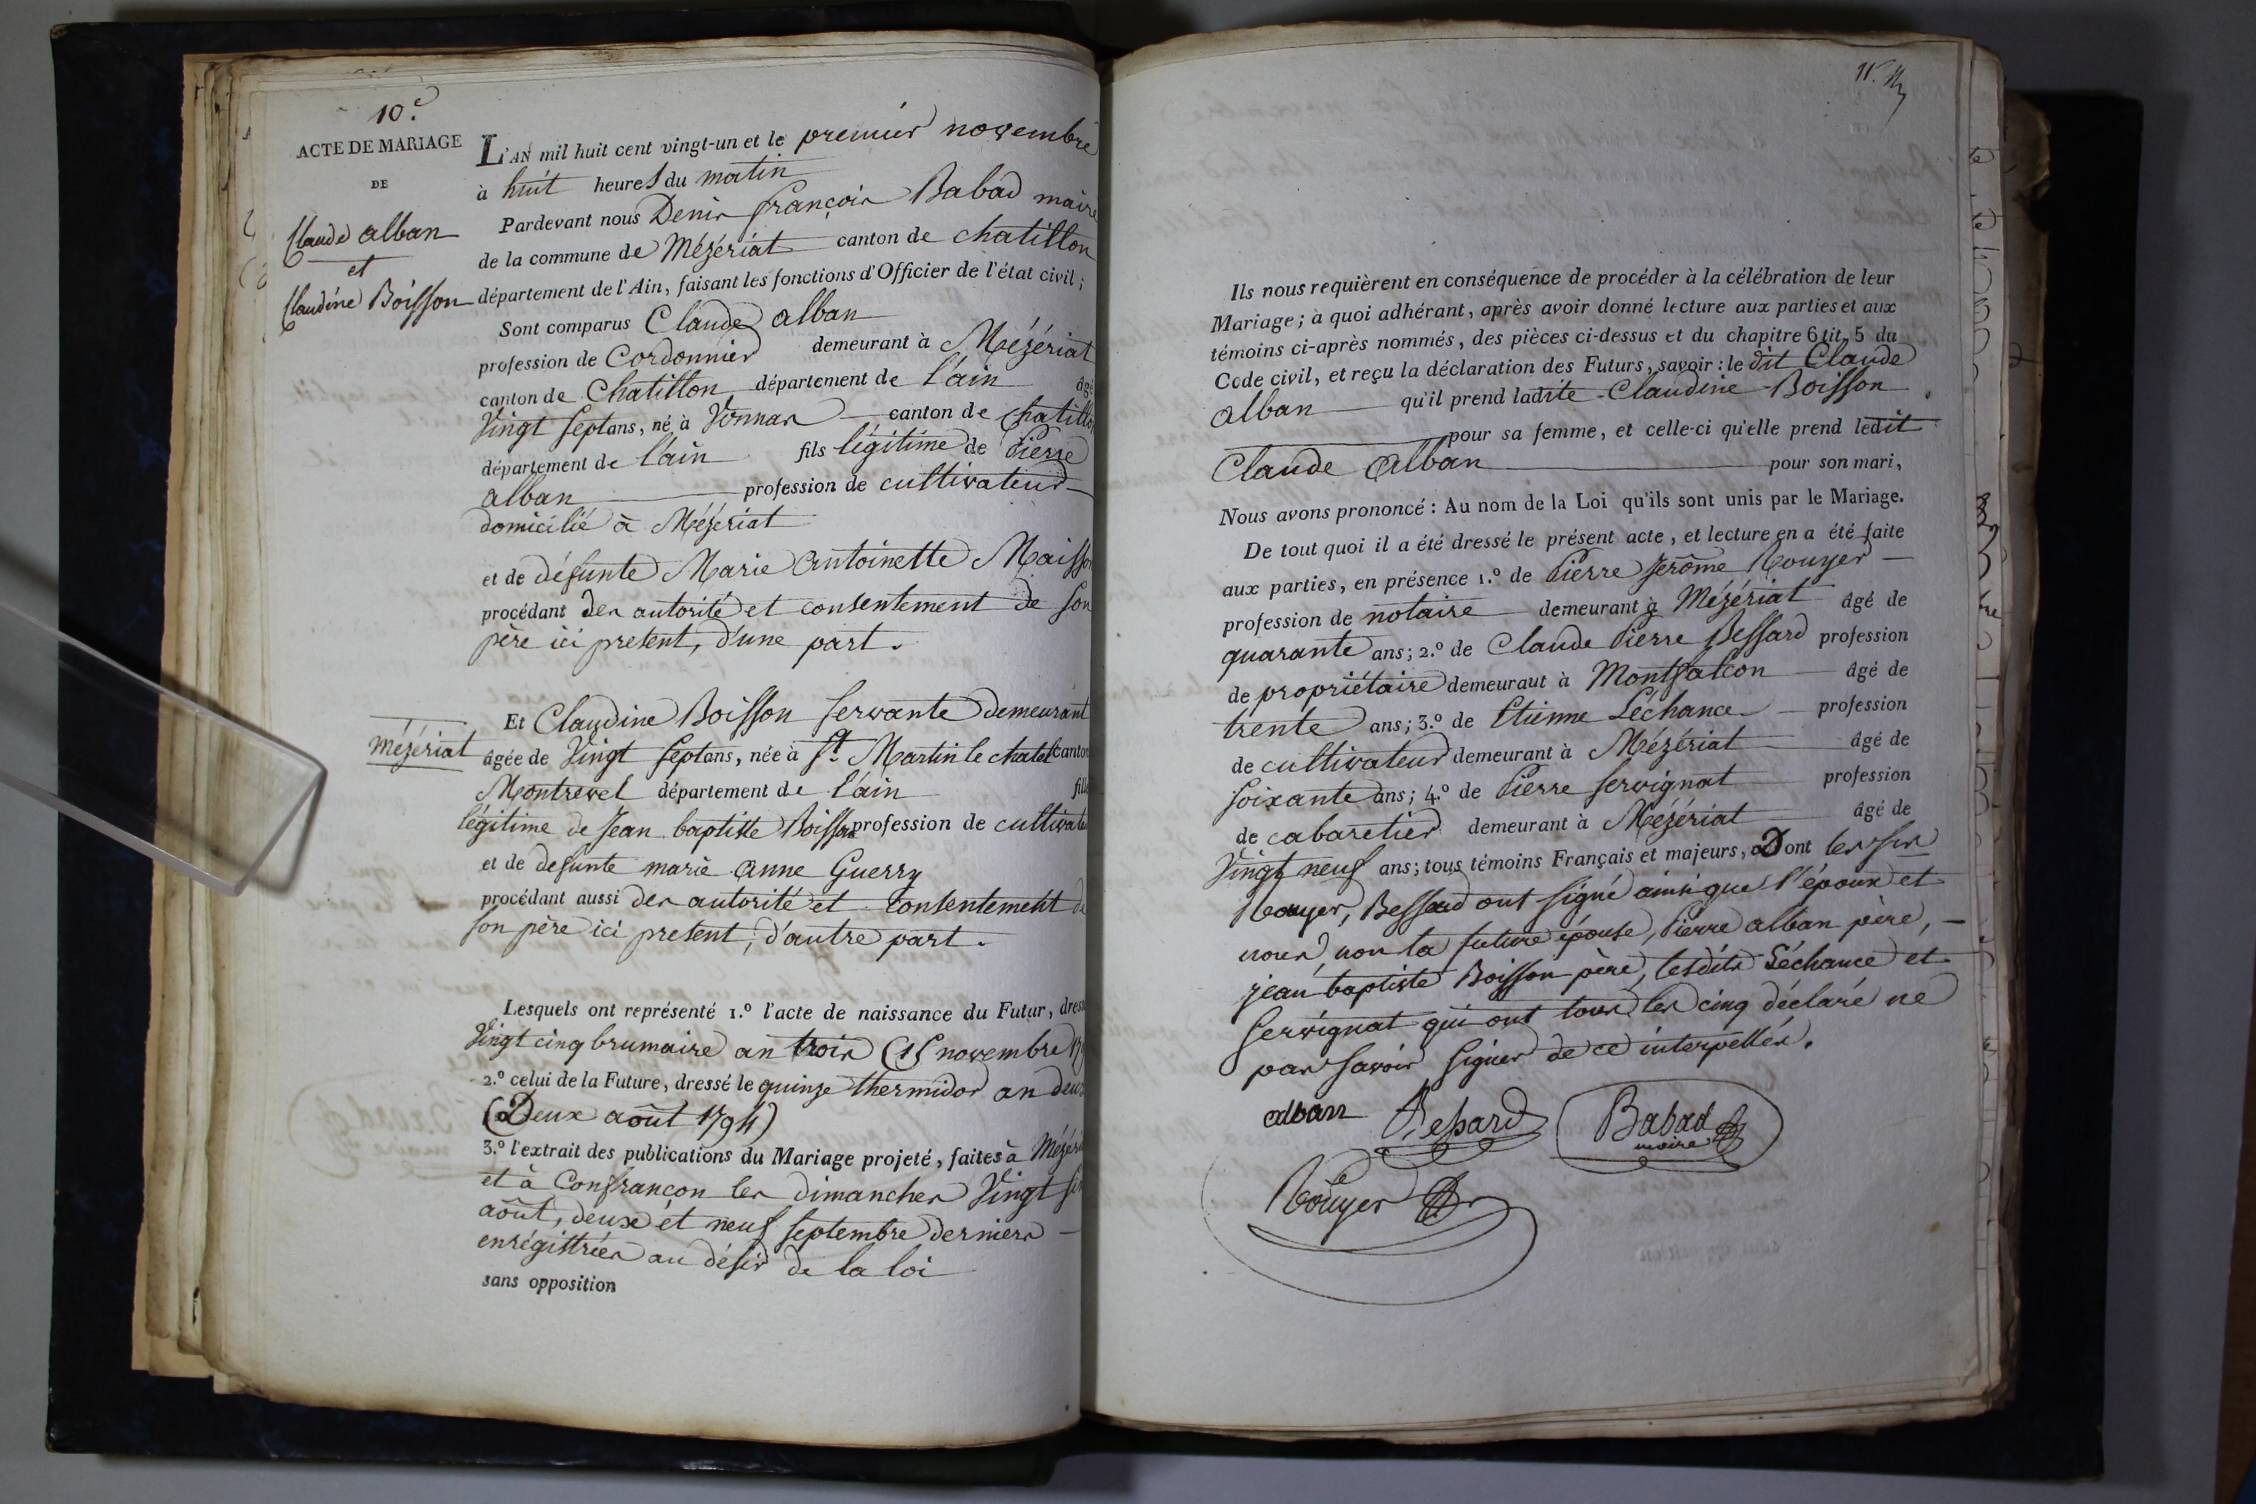 10.e
ACTE DE MARIAGE
DE
Claude alban
et
Claudine Boisson
L'AN mil huit cent vingt-un et le premier novembre
à huit heures du matin
Pardevant nous Denis françois Babad maire
de la commune de Mézériat canton de chatillon
département de l'Ain, faisant les fonctions d'Officier de l'état civil;
Sont comparus Claude alban
profession de Cordonnier demeurant à Mézériat
canton de Chatillon département de l'ain âgé
Vingt sept ans, né à Vonnas canton de chatillon
département de l'ain fils légitime de Pierre
alban profession de cultivateur
domicilié à Mézeriat
et de défunte Marie Antoinette Maisson
procédant des autorité et consentement de son
père ici present, d'une part.
Et Claudine Boisson servante demeurant
mézériat
âgée de Vingt sept ans, née à St. Martin le chatel canton
Montrevel département de l'ain fille
légitime de Jean baptiste Boisson profession de cultivateur
et de defunte marie anne Guerry
procédant aussi des autorité et consentement de
son père ici present, d'autre part.
Lesquels ont représenté 1.º l'acte de naissance du Futur, dressé
Vingt cinq brumaire an trois (15 novembre 179
2.º celui de la Future, dressé le quinze thermidor an deux
(Deux août 1794)
3.º l'extrait des publications du Mariage projeté, faites à Mézéria
et à Confrançon les dimanches Vingt six
août, deux et neuf septembre derniers
enrégistrées au désir de la loi
sans opposition
11.
Ils nous requièrent en conséquence de procéder à la célébration de leur
Mariage; à quoi adhérant, après avoir donné lecture aux parties et aux
témoins ci-après nommés, des pièces ci-dessus et du chapitre 6 tit. 5 du
Code civil, et reçu la déclaration des Futurs, savoir: le dit Claude
alban qu'il prend ladite Claudine Boisson
pour sa femme, et celle-ci qu'elle prend ledit
Claude Alban pour son mari,
Nous avons prononcé: Au nom de la Loi qu'ils sont unis par le Mariage.
De tout quoi il a été dressé le présent acte, et lecture en a été faite
aux parties, en présence 1.º de Pierre Jerôme Rouyer
profession de notaire demeurant à Mézériat âgé de
quarante ans; 2.º de Claude Pierre Bessard profession
de propriétaire demeuraut à Montfalcon âgé de
trente ans; 3.º de Etienne Léchance profession
de cultivateur demeurant à Mézériat âgé de
soixante ans; 4.º de Pierre Servignat profession
de cabaretier demeurant à Mézériat âgé de
Vingt neuf ans; tous témoins Français et majeurs, Dont les srs
Rouyer, Bessard ont signé ainsi que l'époux et
nous, non la future épouse, Pierre alban père,
jean baptiste Boisson père, lesdits Léchance et
Servignat qui ont tous les cinq déclaré ne
pas savoir signer de ce interpellés.
alban Bessard Babad
maire
Rouyer